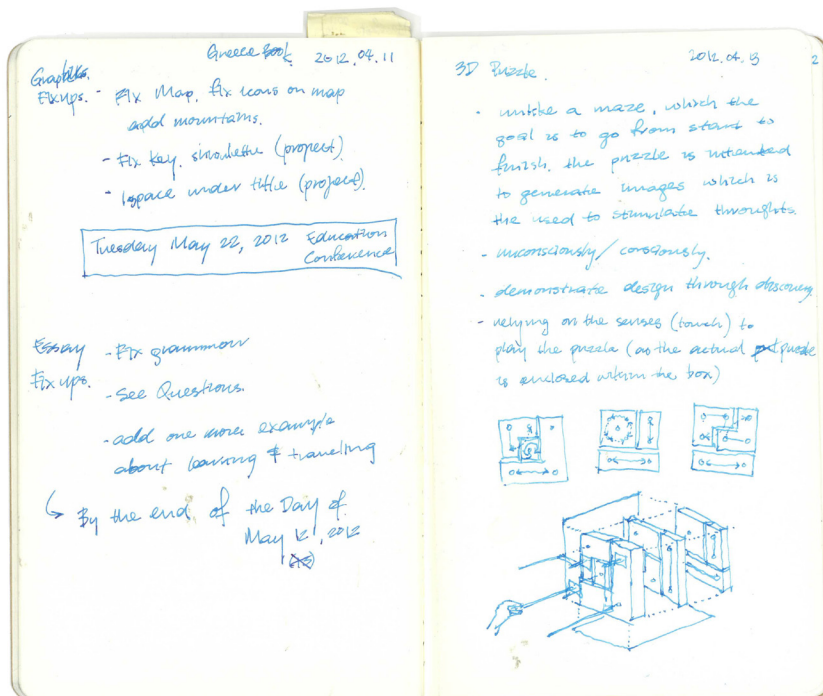 Greece Book 2012.04.11
Graphics
Fix ups. - Fix Map, fix icons on map
add mountains.
- Fix key, silhouette (project).
- 1 space under title (project).
Tuesday May 22, 2012 Education
Conference
Essay - Fix grammar
Fix ups.
- See Questions.
- add one more example
about learning & traveling
↳ By the end of the Day of
May 12, 2012
3D Puzzle. 2012.04.13 2
- unlike a maze, which the
goal is to go from start to
finish, the puzzle is intended
to generate images which is
the used to stimulate thoughts.
- unconsciously / consciously.
- demonstrate design through discovery.
- relying on the senses (touch) to
play the puzzle (as the actual puzzle
is enclosed within the box)